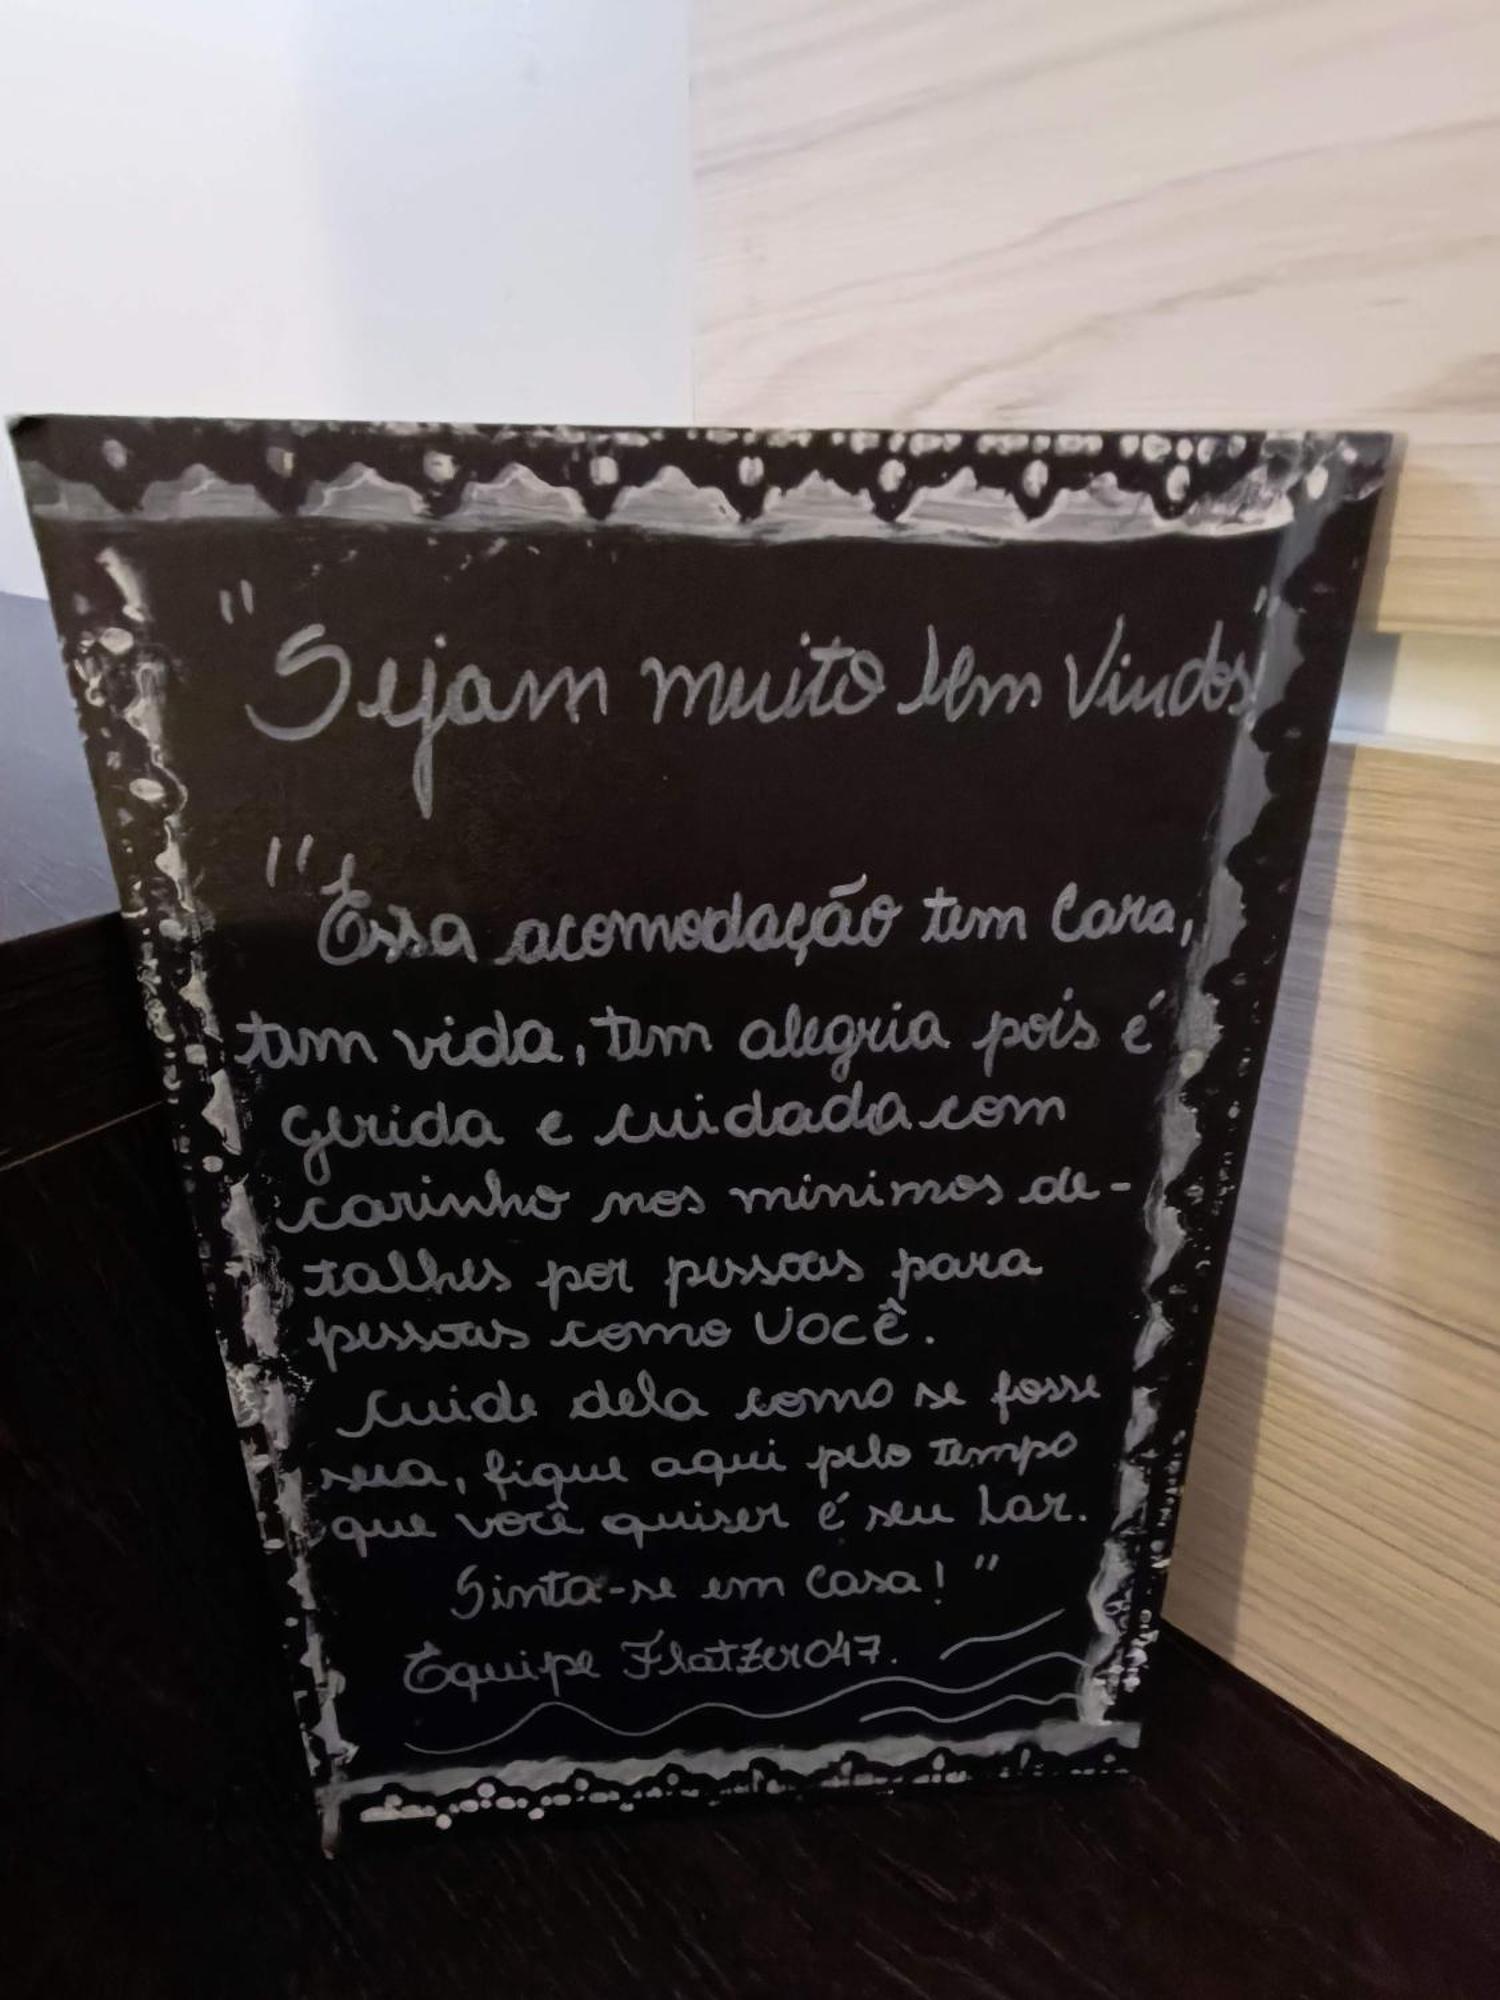 "Sejam muito bem Vindos"
"Essa acomodação tem Cara,
tem vida, tem alegria pois é
gerida e cuidada com
carinho nos minimos de-
talhes por pessoas para
pessoas como VOCÊ.
Cuide dela como se fosse
sua, fique aqui pelo tempo
que você quiser é seu Lar.
Sinta-se em Casa!"
Equipe FlatZero47.